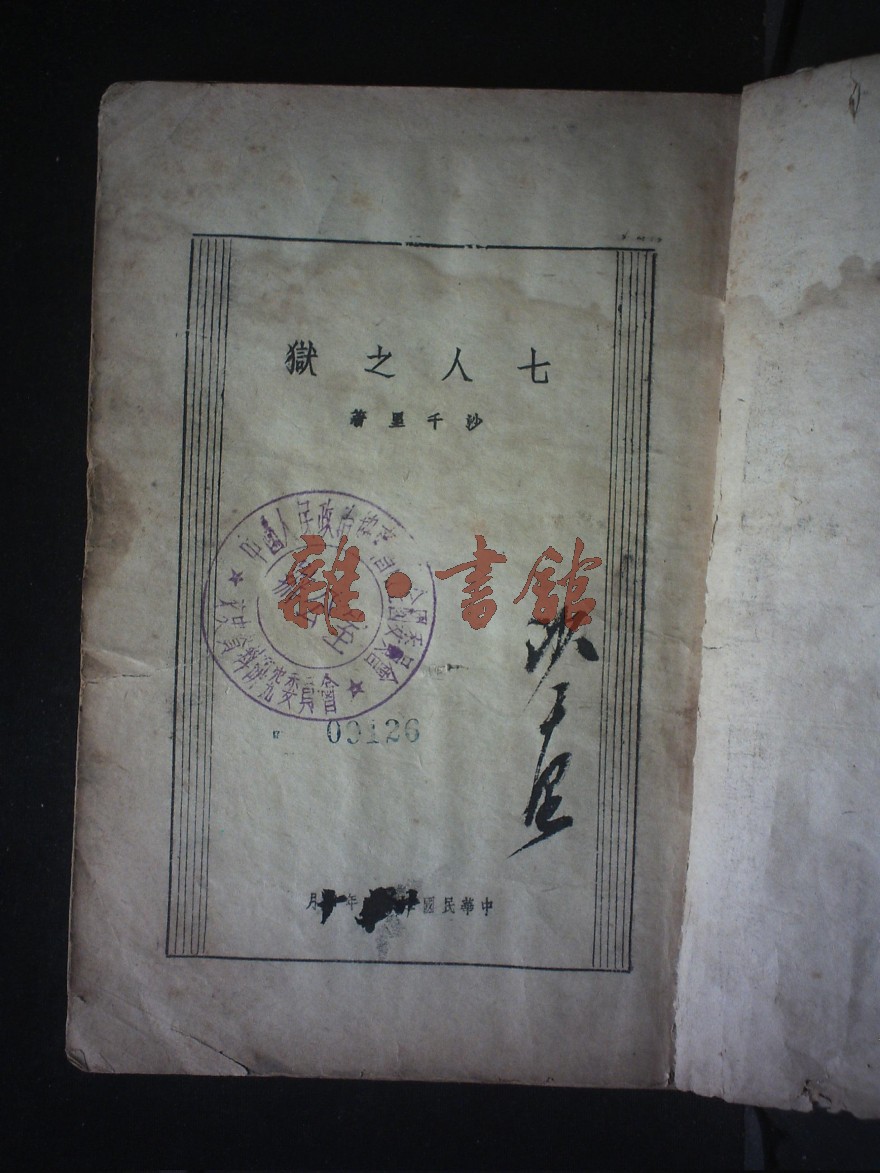 七人之獄
沙千里著
中國人民政治協商會議全國委員會
文史資料研究委員會
雜·書館
沙千里
00126
中華民國年月